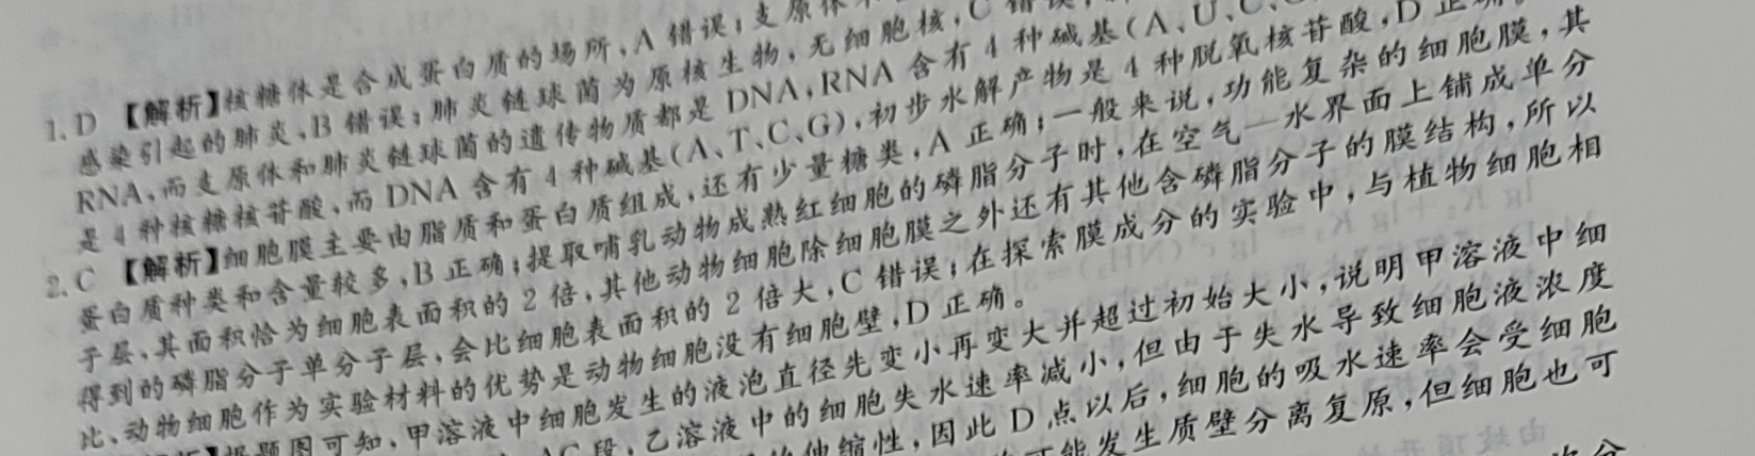 1. D 【解析】核糖体是合成蛋白质的场所,A 错误;支原体
感染引起的肺炎,B 错误;肺炎链球菌为原核生物,无细胞核,C 错误
RNA,而支原体和肺炎链球菌的遗传物质都是 DNA,RNA 含有 4 种碱基(A、U、C、
是 4 种核糖核苷酸,而 DNA 含有 4 种碱基(A、T、C、G),初步水解产物是 4 种脱氧核苷酸,D 正确
2. C 【解析】细胞膜主要由脂质和蛋白质组成,还有少量糖类,A 正确;一般来说,功能复杂的细胞膜,其
蛋白质种类和含量较多,B 正确;提取哺乳动物成熟红细胞的磷脂分子时,在空气—水界面上铺成单分
子层,其面积恰为细胞表面积的 2 倍,其他动物细胞除细胞膜之外还有其他含磷脂分子的膜结构,所以
得到的磷脂分子单分子层,会比细胞表面积的 2 倍大,C 错误;在探索膜成分的实验中,与植物细胞相
比,动物细胞作为实验材料的优势是动物细胞没有细胞壁,D 正确。
题图可知,甲溶液中细胞发生的液泡直径先变小再变大并超过初始大小,说明甲溶液中细
段,乙溶液中的细胞失水速率减小,但由于失水导致细胞液浓度
伸缩性,因此 D 点以后,细胞的吸水速率会受细胞
可能发生质壁分离复原,但细胞也可